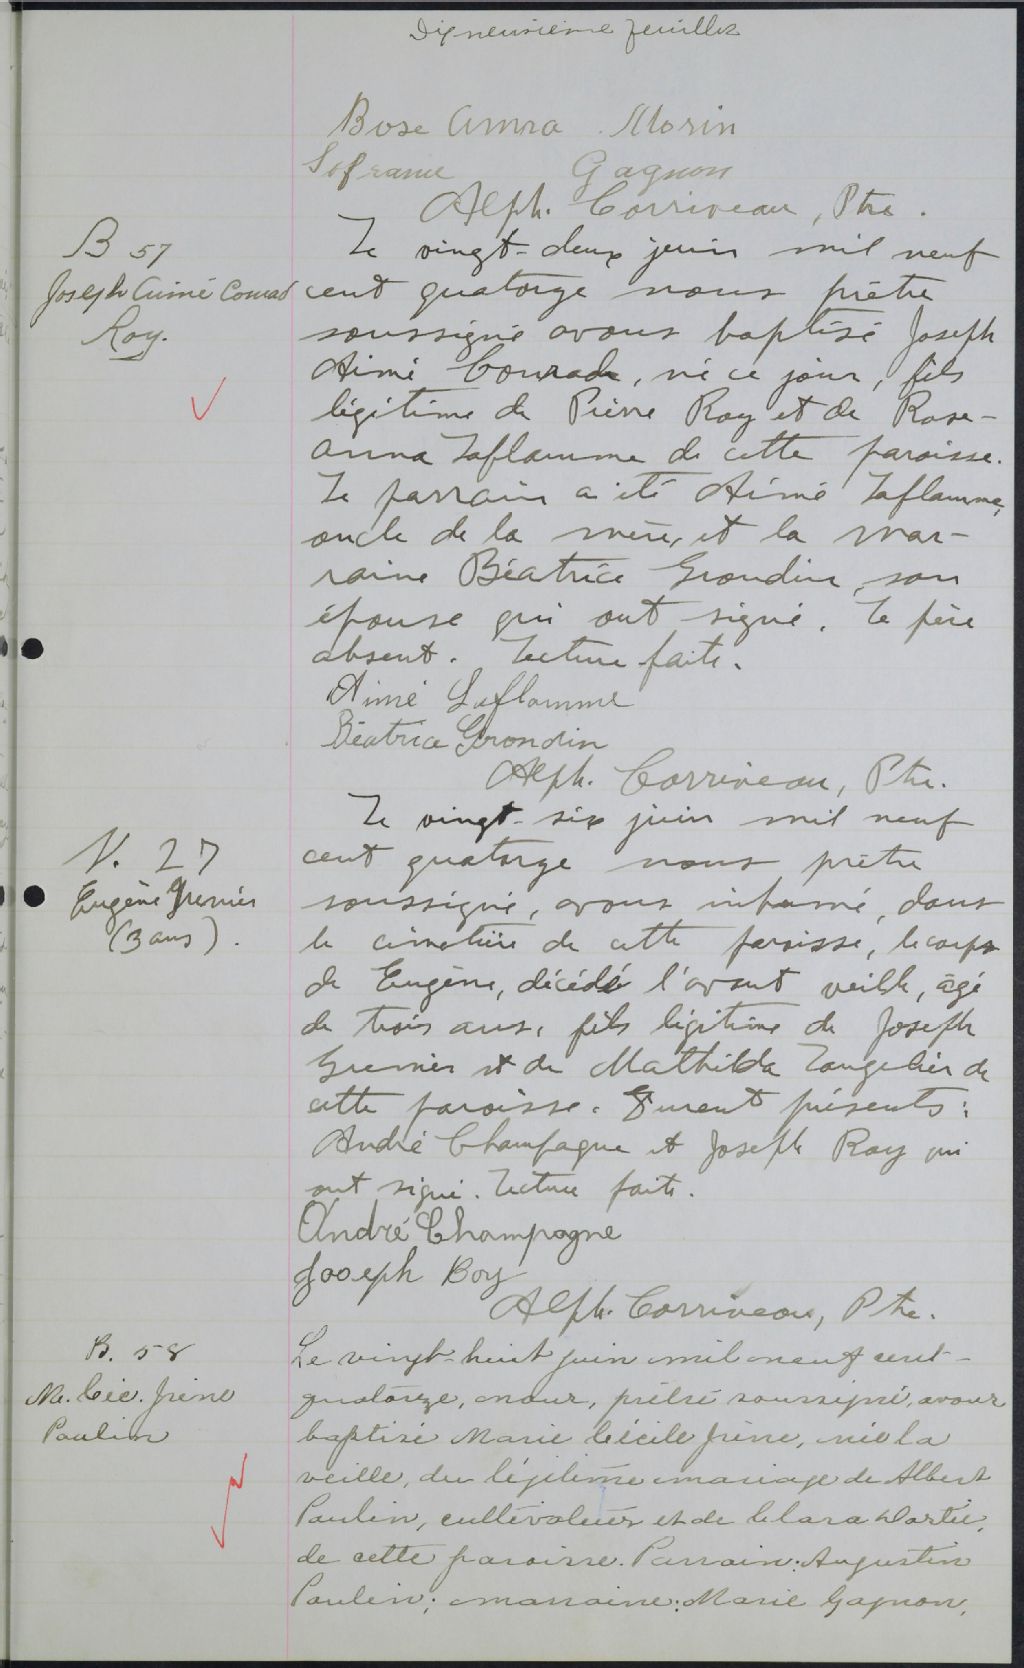 Dixneuvième feuillet
Rose Anna Morin
Gagnon
Alph. Corriveau, Ptre.
B 57
Joseph Aimé Conrad
Roy.
Le vingt-deux juin mil neuf
cent quatorze nous prêtre
soussigné avons baptisé Joseph
Aimé Conrad, né ce jour, fils
légitime de Pierre Roy et de Rose-
Anna Laflamme de cette paroisse.
Le parrain a été Aimé Laflamme,
oncle de la mère, et la mar-
raine Béatrice Grondin, son
épouse qui ont signé. Le père
absent. Lecture faite.
Aimé Laflamme
Béatrice Grondin
Alph. Corriveau, Ptr.
N. 27
Eugène Grenier
(3 ans).
Le vingt-six juin mil neuf
cent quatorze nous prêtre
soussigné, avons inhumé, dans
le cimetière de cette paroisse, le corps
de Eugène, décédé l'avant veille, âgé
de trois ans, fils légitime de Joseph
Grenier et de Mathilda Langelier de
cette paroisse. Furent présents:
André Champagne et Joseph Roy qui
ont signé. Lecture faite.
André Champagne
Joseph Roy
Alph. Corriveau, Ptr.
B. 58
Me. Céc. Irène
Poulin
Le vingt-huit juin mil neuf cent-
quatorze, nous, prêtre soussigné, avons
baptisé Marie Cécile Irène, née la
veille, du légitime mariage de Albert
Poulin, cultivateur et de Clara
de cette paroisse. Parrain: Augustin
Poulin; marraine: Marie Gagnon,